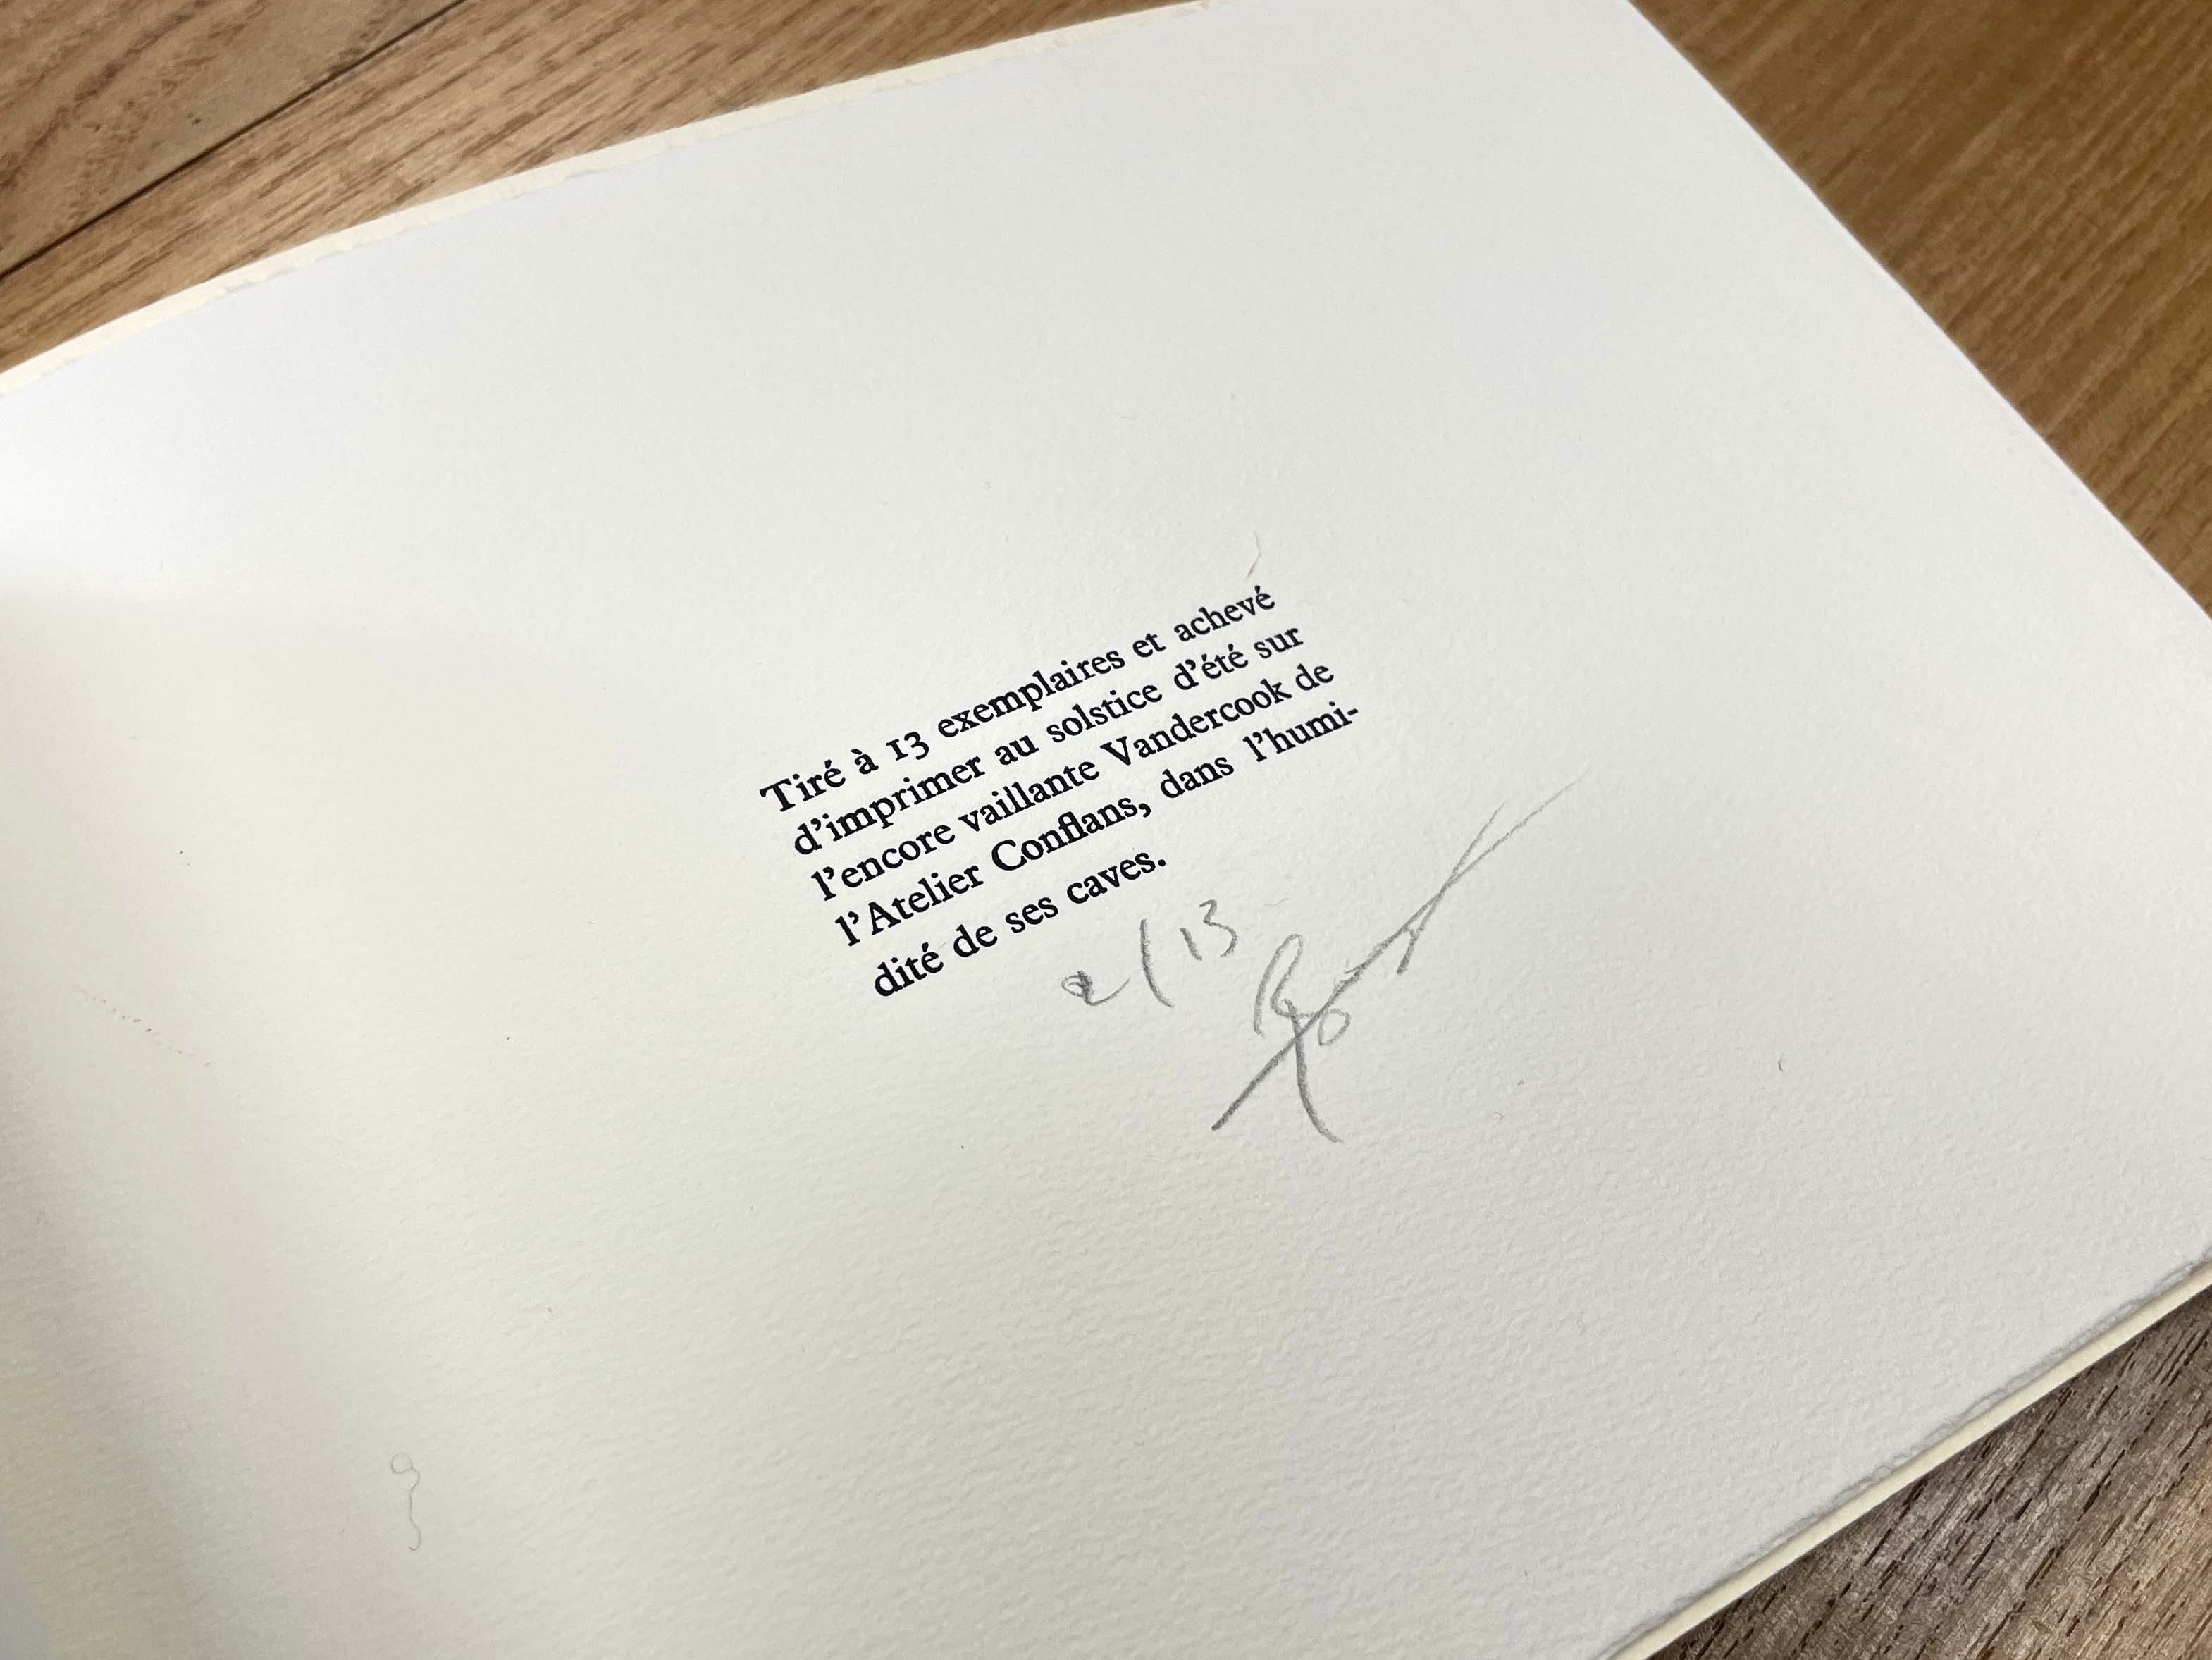 Tiré à 13 exemplaires et achevé
d'imprimer au solstice d'été sur
l'encore vaillante Vandercook de
l'Atelier Conflans, dans l'humi-
dité de ses caves.
2/13